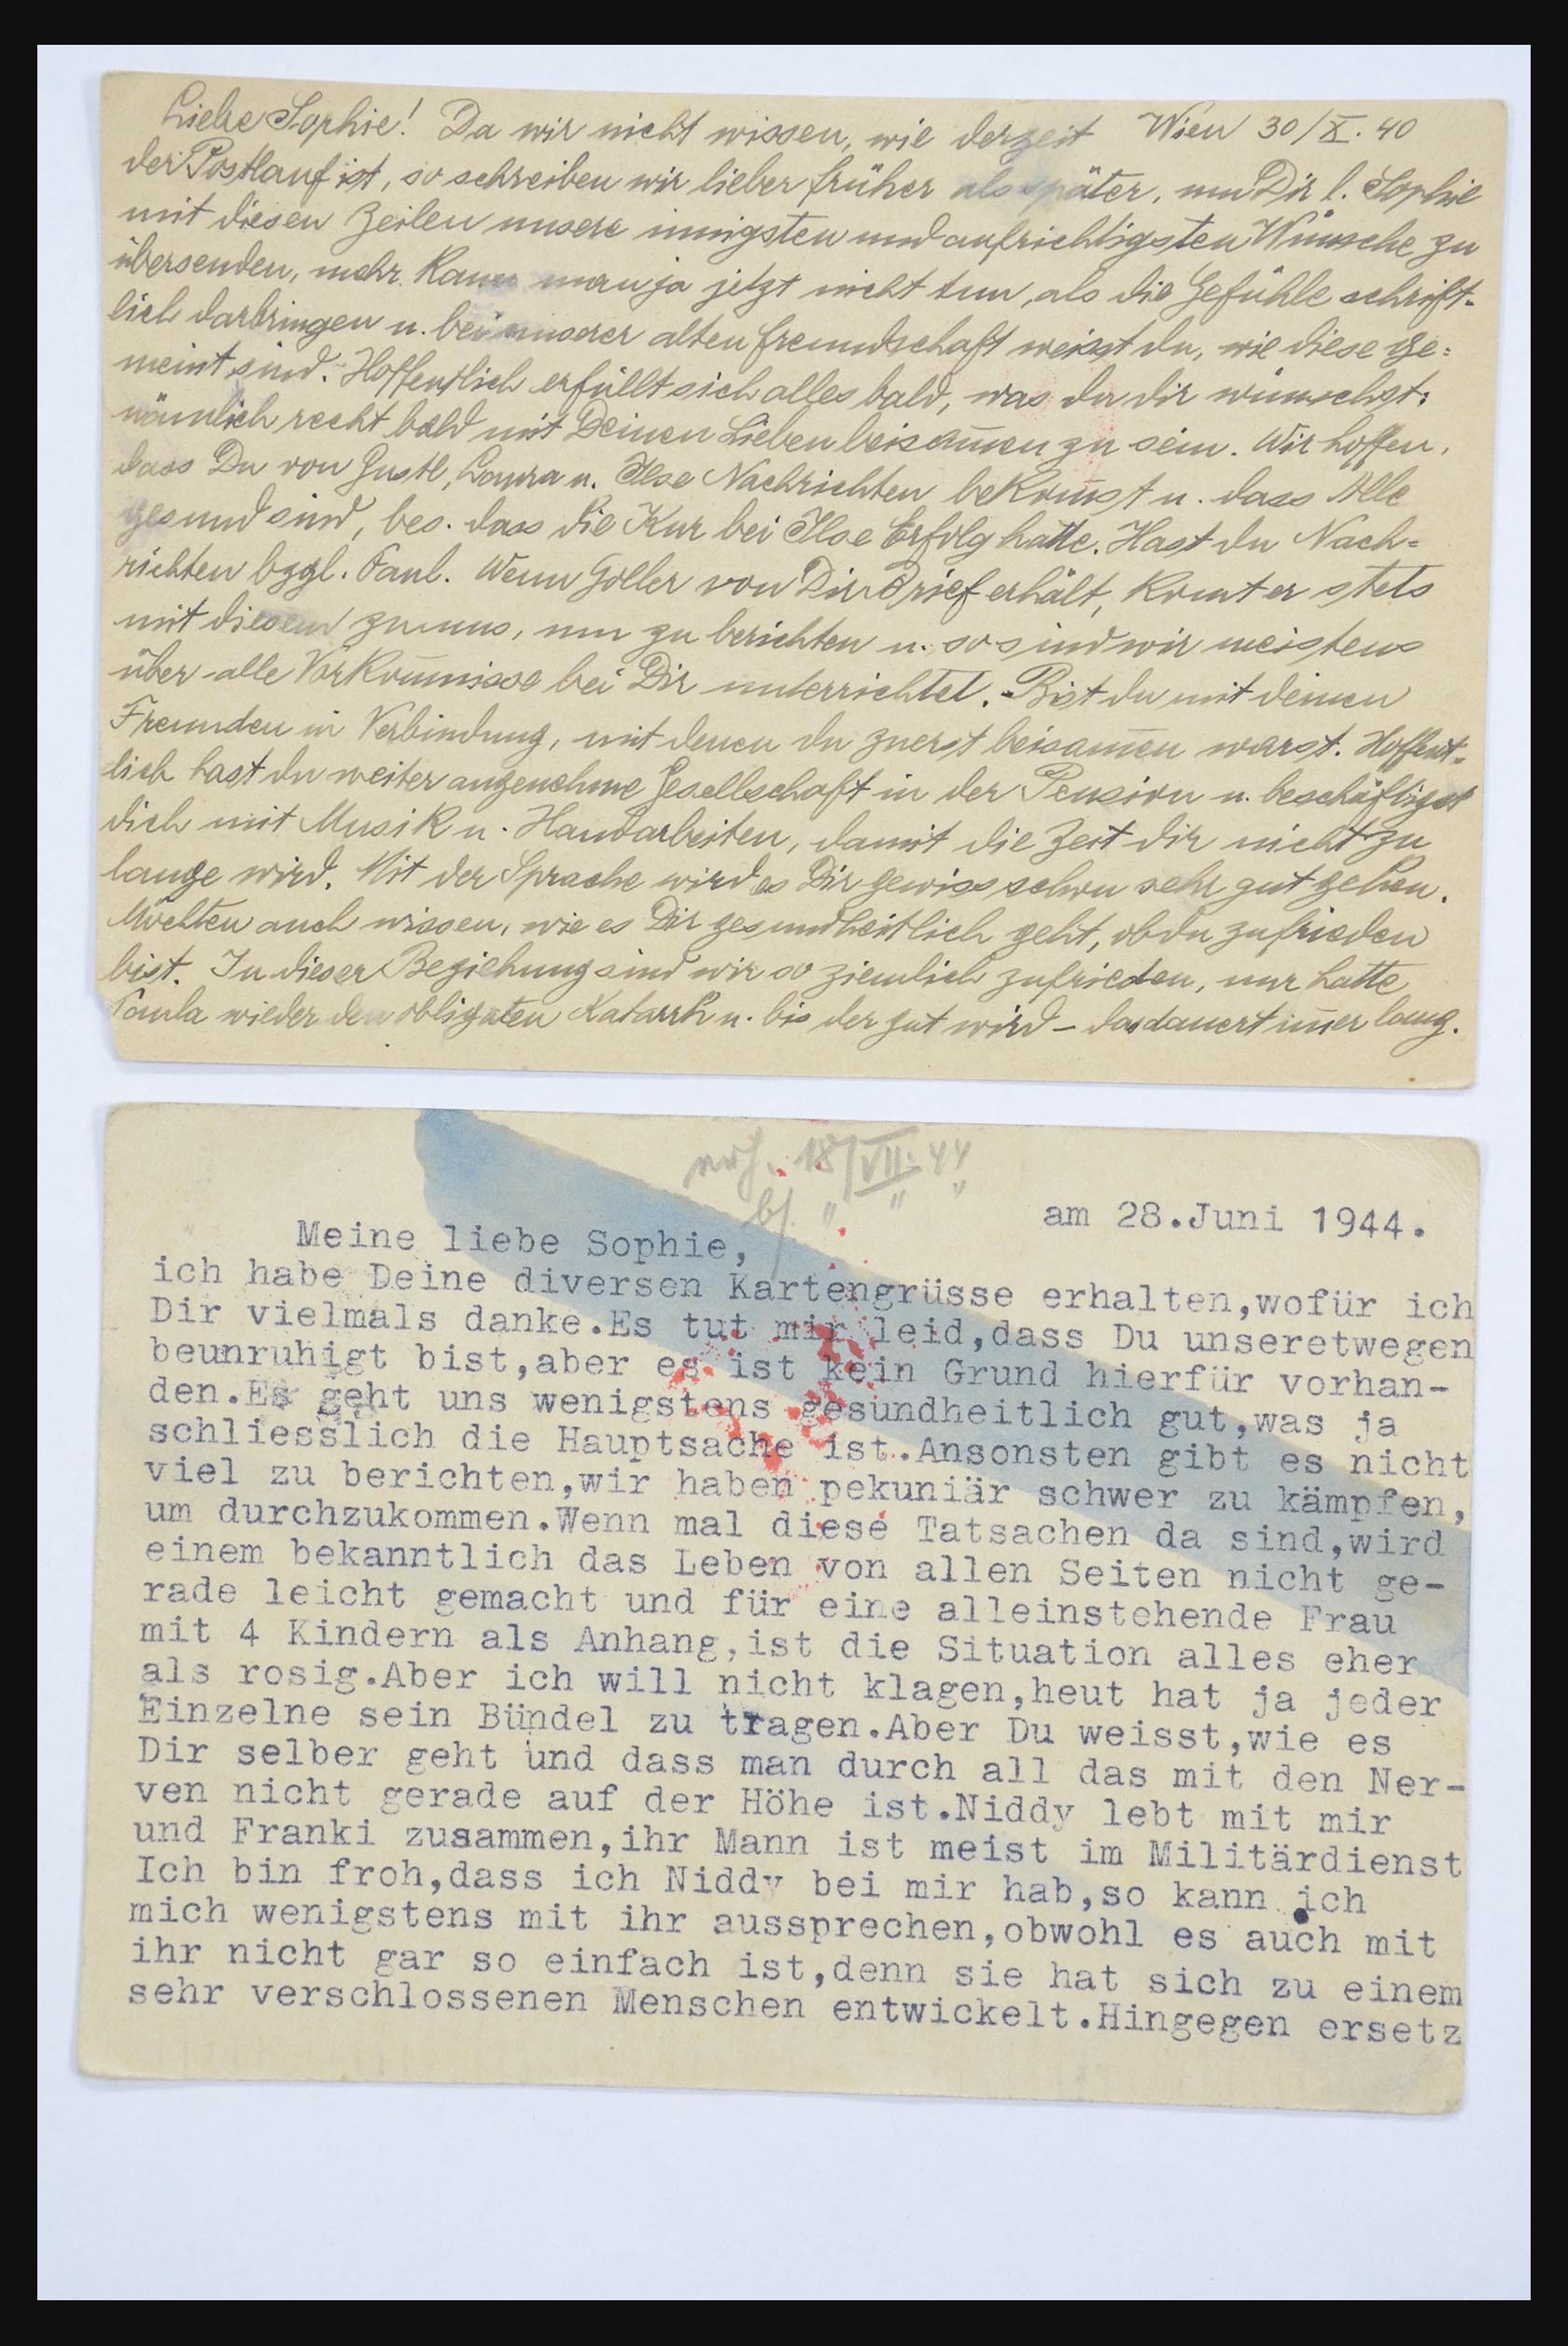 Liebe Sophie! Da wir nicht wissen, wie derzeit Wien 30/X.40
der Postlauf ist, so schreiben wir lieber früher als später, um Dir l. Sophie
mit diesen Zeilen unsere innigsten und aufrichtigsten Wünsche zu
übersenden, mehr kann man ja jetzt nicht tun, als die Gefühle schrift-
lich darbringen u. bei unserer alten Freundschaft weisst du, wie diese ge=
meint sind. Hoffentlich erfüllt sich alles bald, was du dir wünschst:
nämlich recht bald mit Deinen Lieben beisam̄en zu sein. Wir hoffen,
dass Du von Gustl, Laura u. Ilse Nachrichten bekom̄st u. dass Alle
gesund sind, bes. dass die Kur bei Ilse Erfolg hatte. Hast du Nach=
richten bzgl. Paul. Wenn Goller von Dir Brief erhält, kom̄t er stets
mit diesem zu uns, um zu berichten u. so sind wir meistens
über alle Vorkom̄nisse bei Dir unterrichtet. - Bist du mit deinen
Freunden in Verbindung, mit denen du zuerst beisam̄en warst. Hoffent-
lich hast du weiter angenehme Gesellschaft in der Pension u. beschäftigst
dich mit Musik u. Handarbeiten, damit die Zeit dir nicht zu
lange wird. Mit der Sprache wird es Dir gewiss schon sehr gut gehen.
Möchten auch wissen, wie es Dir gesundheitlich geht, ob du zufrieden
bist. In dieser Beziehung sind wir so ziemlich zufrieden, nur hatte
Paula wieder den obligaten Katarrh u. bis der gut wird – das dauert im̄er lang.
18/VII.44
b/. " " "
am 28.Juni 1944.
Meine liebe Sophie,
ich habe Deine diversen Kartengrüsse erhalten,wofür ich
Dir vielmals danke.Es tut mir leid,dass Du unseretwegen
beunruhigt bist,aber es ist kein Grund hierfür vorhan-
den.Es geht uns wenigstens gesundheitlich gut,was ja
schliesslich die Hauptsache ist.Ansonsten gibt es nicht
viel zu berichten,wir haben pekuniär schwer zu kämpfen,
um durchzukommen.Wenn mal diese Tatsachen da sind,wird
einem bekanntlich das Leben von allen Seiten nicht ge-
rade leicht gemacht und für eine alleinstehende Frau
mit 4 Kindern als Anhang,ist die Situation alles eher
als rosig.Aber ich will nicht klagen,heut hat ja jeder
Einzelne sein Bündel zu tragen.Aber Du weisst,wie es
Dir selber geht und dass man durch all das mit den Ner-
ven nicht gerade auf der Höhe ist.Niddy lebt mit mir
und Franki zusammen,ihr Mann ist meist im Militärdienst
Ich bin froh,dass ich Niddy bei mir hab,so kann ich
mich wenigstens mit ihr aussprechen,obwohl es auch mit
ihr nicht gar so einfach ist,denn sie hat sich zu einem
sehr verschlossenen Menschen entwickelt.Hingegen ersetz